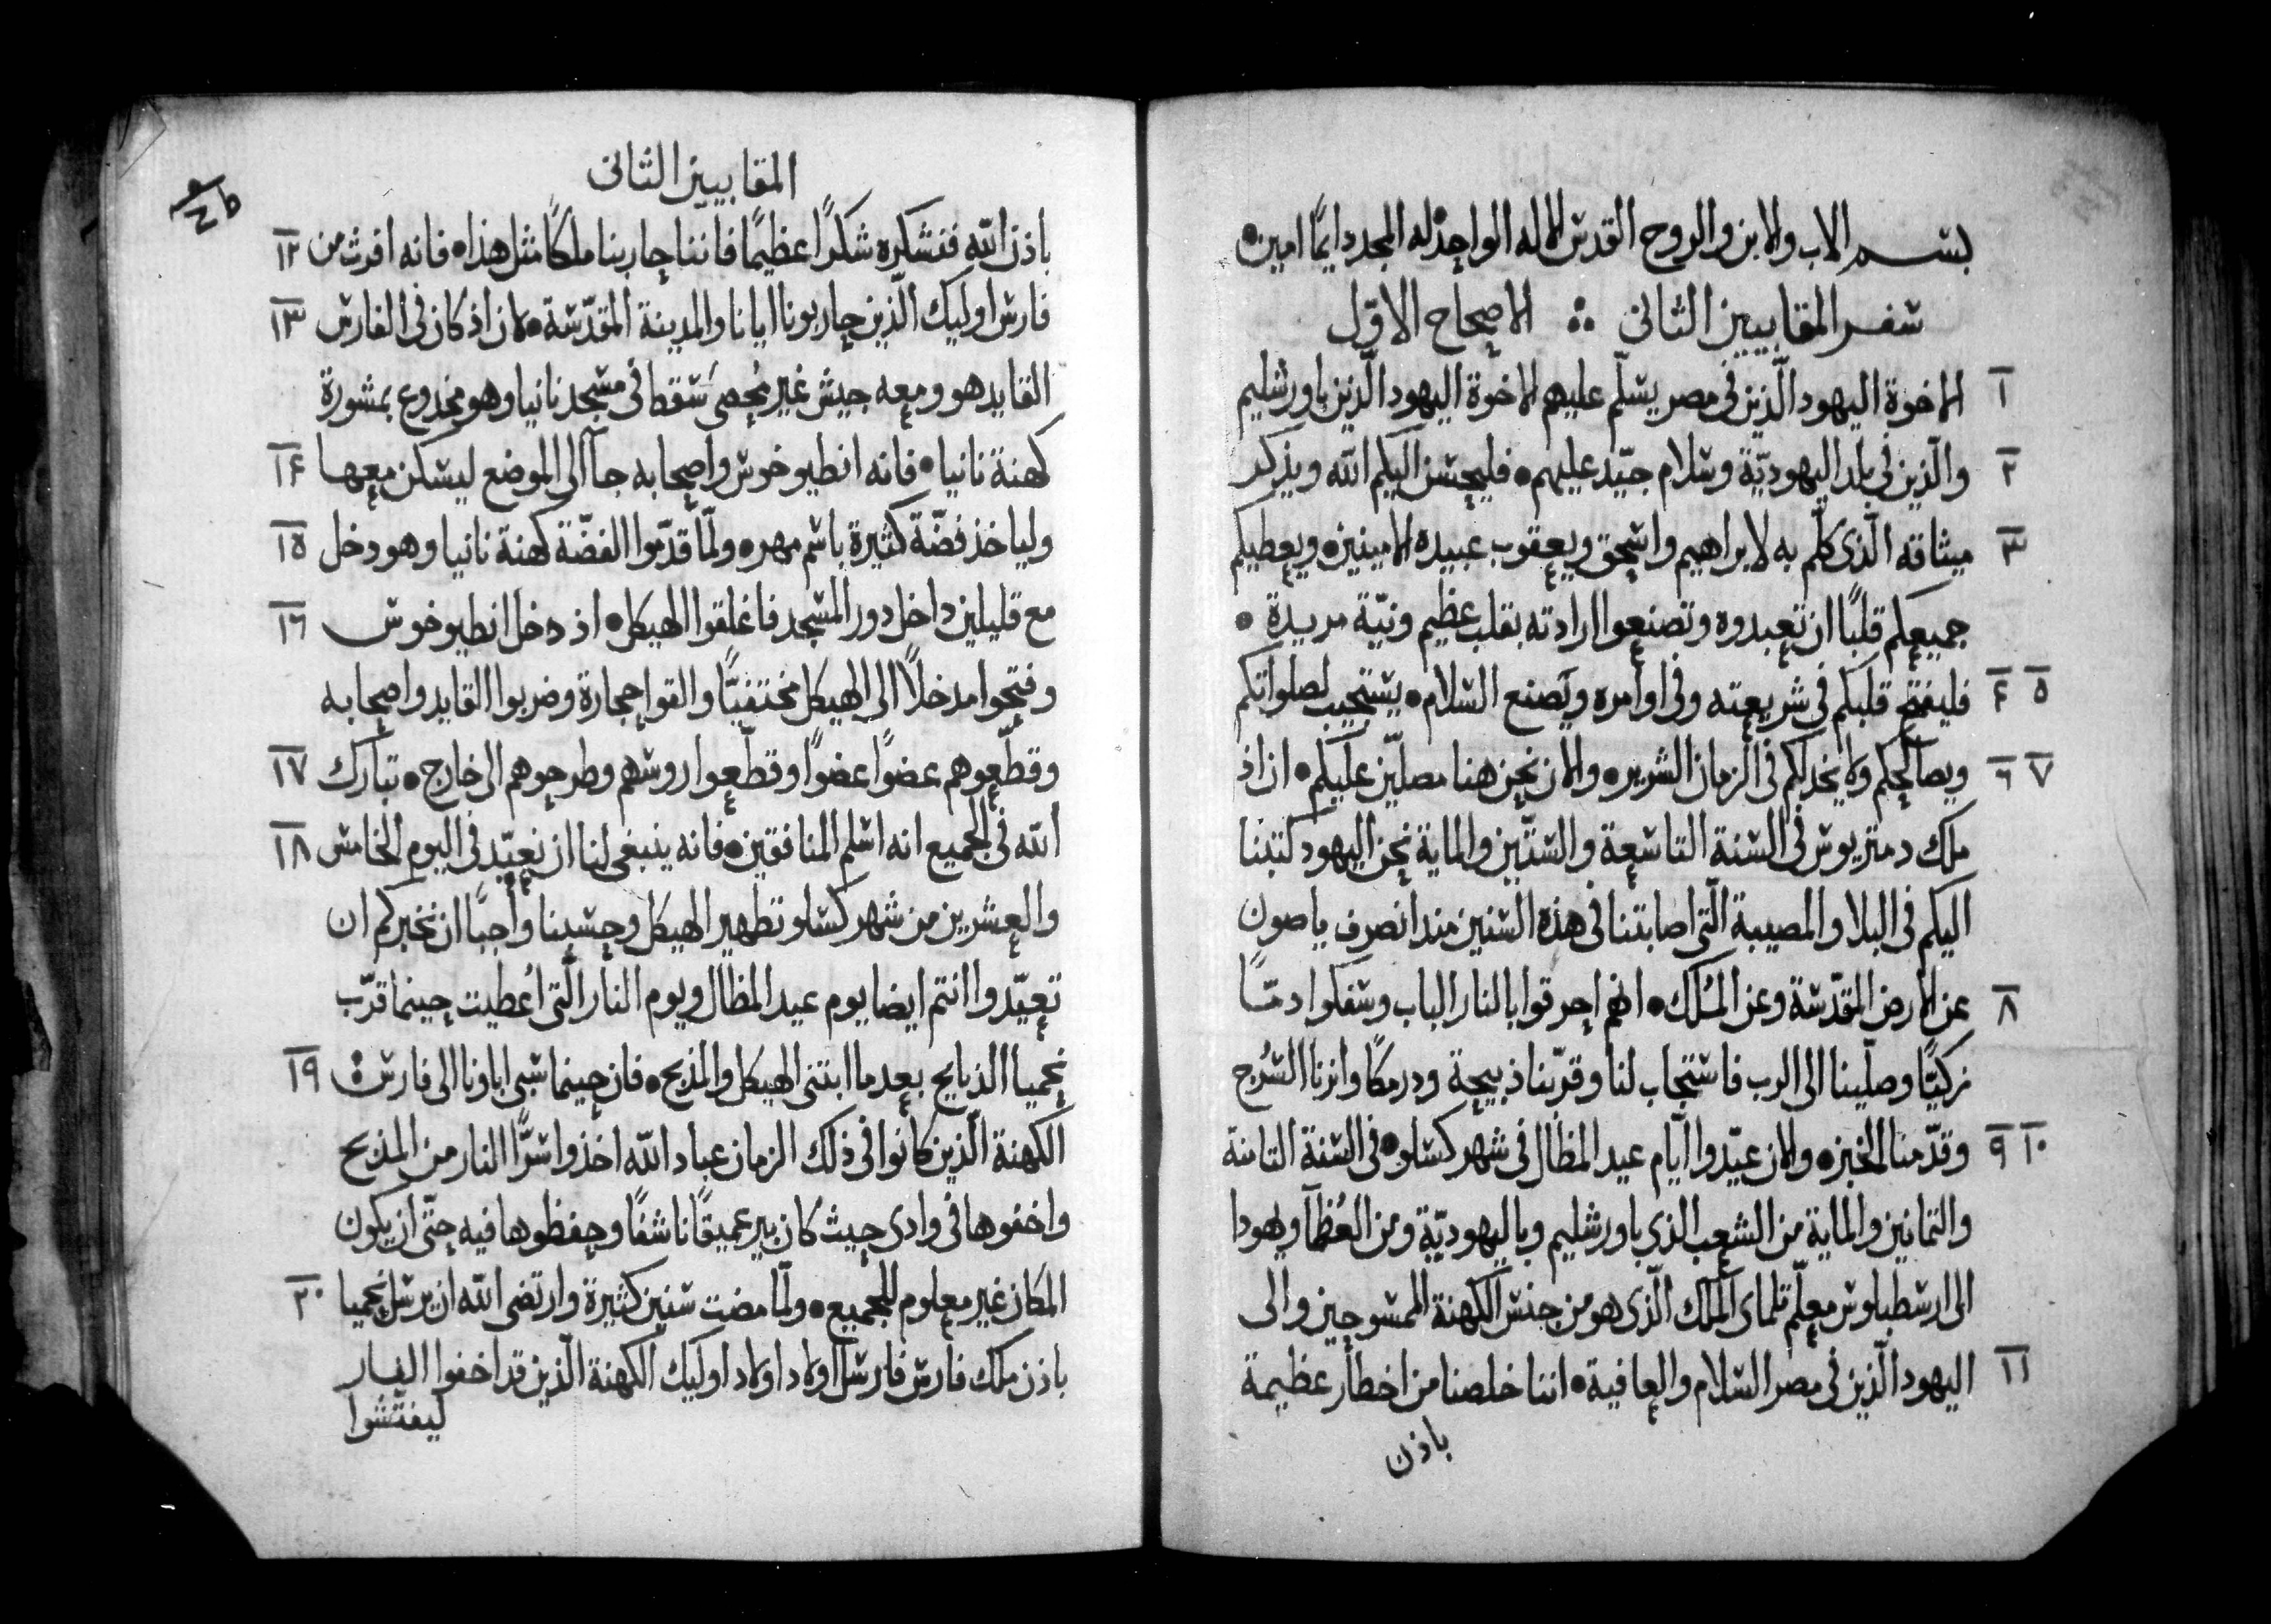 بسم الاب والابن والروح القدس الاله الواحد له المجد دايمًا امين
سفر المقابيين الثانى ∴ الاصحاح الاوّل
١ الاخوة اليهود الّذين فى مصر يسلّم عليهم الاخوة اليهود الّذين باورشليم
٢ والّذين فى بلد اليهوديّة وسلام جيّد عليهم • فليحسن اليكم الله ويذكر
٣ ميثاقه الّذى كلّم به لابراهيم واسحق ويعقوب عبيده الامينين • ويعطيكم
جميعكم قلبًا ان تعبدوه وتصنعوا ارادته بقلب عظيم ونيّة مريدة •
٤ ٥ فليفتح قلبكم فى شريعته وفى اوامره ويصنع السلام • يستجيب لصلواتكم
٦ ٧ ويصالحكم ولا يخذلكم فى الزمان الشرير • والان نحن هنا مصلّين عليكم • ان اذ
ملك دمتريوس فى السنة التاسعة والستّين والماية نحن اليهود كتبنا
اليكم فى البلا والمصيبة الّتى اصابتنا فى هذه السنين منذ انصرف ياصون
٨ عن الارض المقدّسة وعن المُلك • انهم احرقوا بالنار الباب وسفكوا دمًا
زكيًّا وصلّينا الى الرب فاستجاب لنا وقرّبنا ذبيحة ودرمكًا وانرنا السُرج
٩ ١٠ وقدّمنا الخبز • والان عيّدوا ايّام عيد المظال فى شهر كسلو • فى السنة الثامنة
والثمانين والماية من الشعب الذى باورشليم وباليهوديّة ومن العُظمآ ويهودا
الى ارسطبلوس معلّم تلماى الملك الّذى هو من جنس الكهنة الممسوحين والى
١١ اليهود الّذين فى مصر السلام والعافية • اننا خلصنا من اخطار عظيمة
باذن
المقابيين الثانى
١٢ باذن الله فنشكره شكرًا عظيمًا فاننا حاربنا ملكًا مثل هذا • فانه افرث من
١٣ فارس اوليك الّذين حاربونا ايانا والمدينة المقدّسة • لان اذ كان فى الفارس
القايد هو ومعه جيش غير مُحصى سَقطا فى مسجد نانيا وهو مخدوع بمشورة
١٤ كهنة نانيا • فانه انطيوخوس واصحابه جآ الى الموضع ليسكن معها
١٥ ولياخذ فضّة كثيرة باسم مهر • ولمّا قدّموا الفضّة كهنة نانيا وهو دخل
١٦ مع قليلين داخل دور المسجد فاغلقوا الهيكل • اذ دخل انطيوخوس
وفتحوا مدخلًا الى الهيكل مختفيًّا والقوا حجارة وضربوا القايد واصحابه
١٧ وقطّعوهم عضوًا عضوًا وقطّعوا روسهم وطرحوهم الى خارج • تبارك
١٨ الله فى الجميع انه اسلم المنافقين • فانه ينبغى لنا ان نعيّد فى اليوم الخامس
والعشرين من شهر كسلو تطهير الهيكل وحسبنا واجبًا ان نخبركم ان
تعيّدوا انتم ايضا يوم عيد المظال ويوم النار الّتى اُعطيت حينما قرّب
١٩ نحميا الذبايح بعدما ابتنى الهيكل والمذبح • فان حينما سُبى اباونا الى فارس
الكهنة الّذين كانوا فى ذلك الزمان عباد الله اخذوا سرًّا النار من المذبح
واخفوها فى وادى حيث كان بير عميقًا ناشفًا وحفظوها فيه حتّى ان يكون
٢٠ المكان غير معلوم للجميع • ولمّا مضت سنين كثيرة وارتضى الله ان يرسل نحميا
باذن ملك فارس فارسل اولاد اولاد اوليك الكهنة الّذين قد اخفوا النار
ليفتّشوا